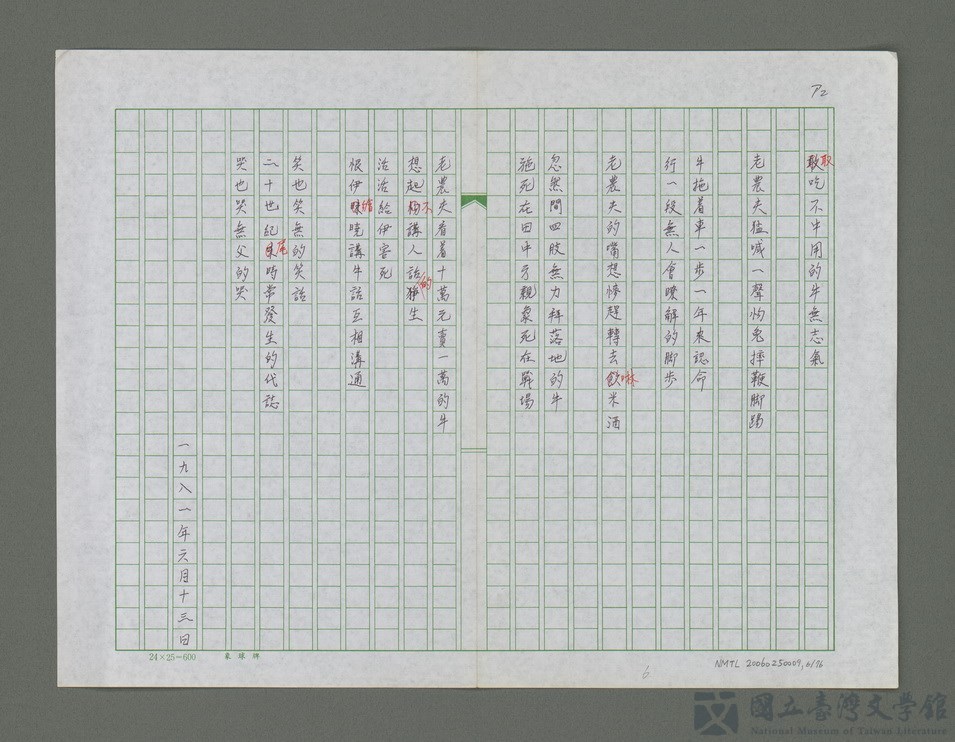 P2
敢取吃不中用的牛無志氣
老農夫猛喊一聲灼兎摔鞭脚踢
牛拖着車一步一年來認命
行一段無人會瞭解的脚步
老農夫的嘴想慘趕轉去飲啉米酒
忽然間四肢無力拜落地的牛
拖死在田中亨親象死在戰場
老農夫看着十萬元買一萬的牛
想起 不講人話的 生
活活給伊害死
恨伊 燴曉講牛話互相溝通
笑也笑無的笑話
二十世紀末尾時常發生的代誌
哭也哭無父的哭
一九八一年六月十三日
24×25=600
象球牌
6
NMTL 20060250009, 6/76
國立臺灣文學館
National Museum of Taiwan Literature